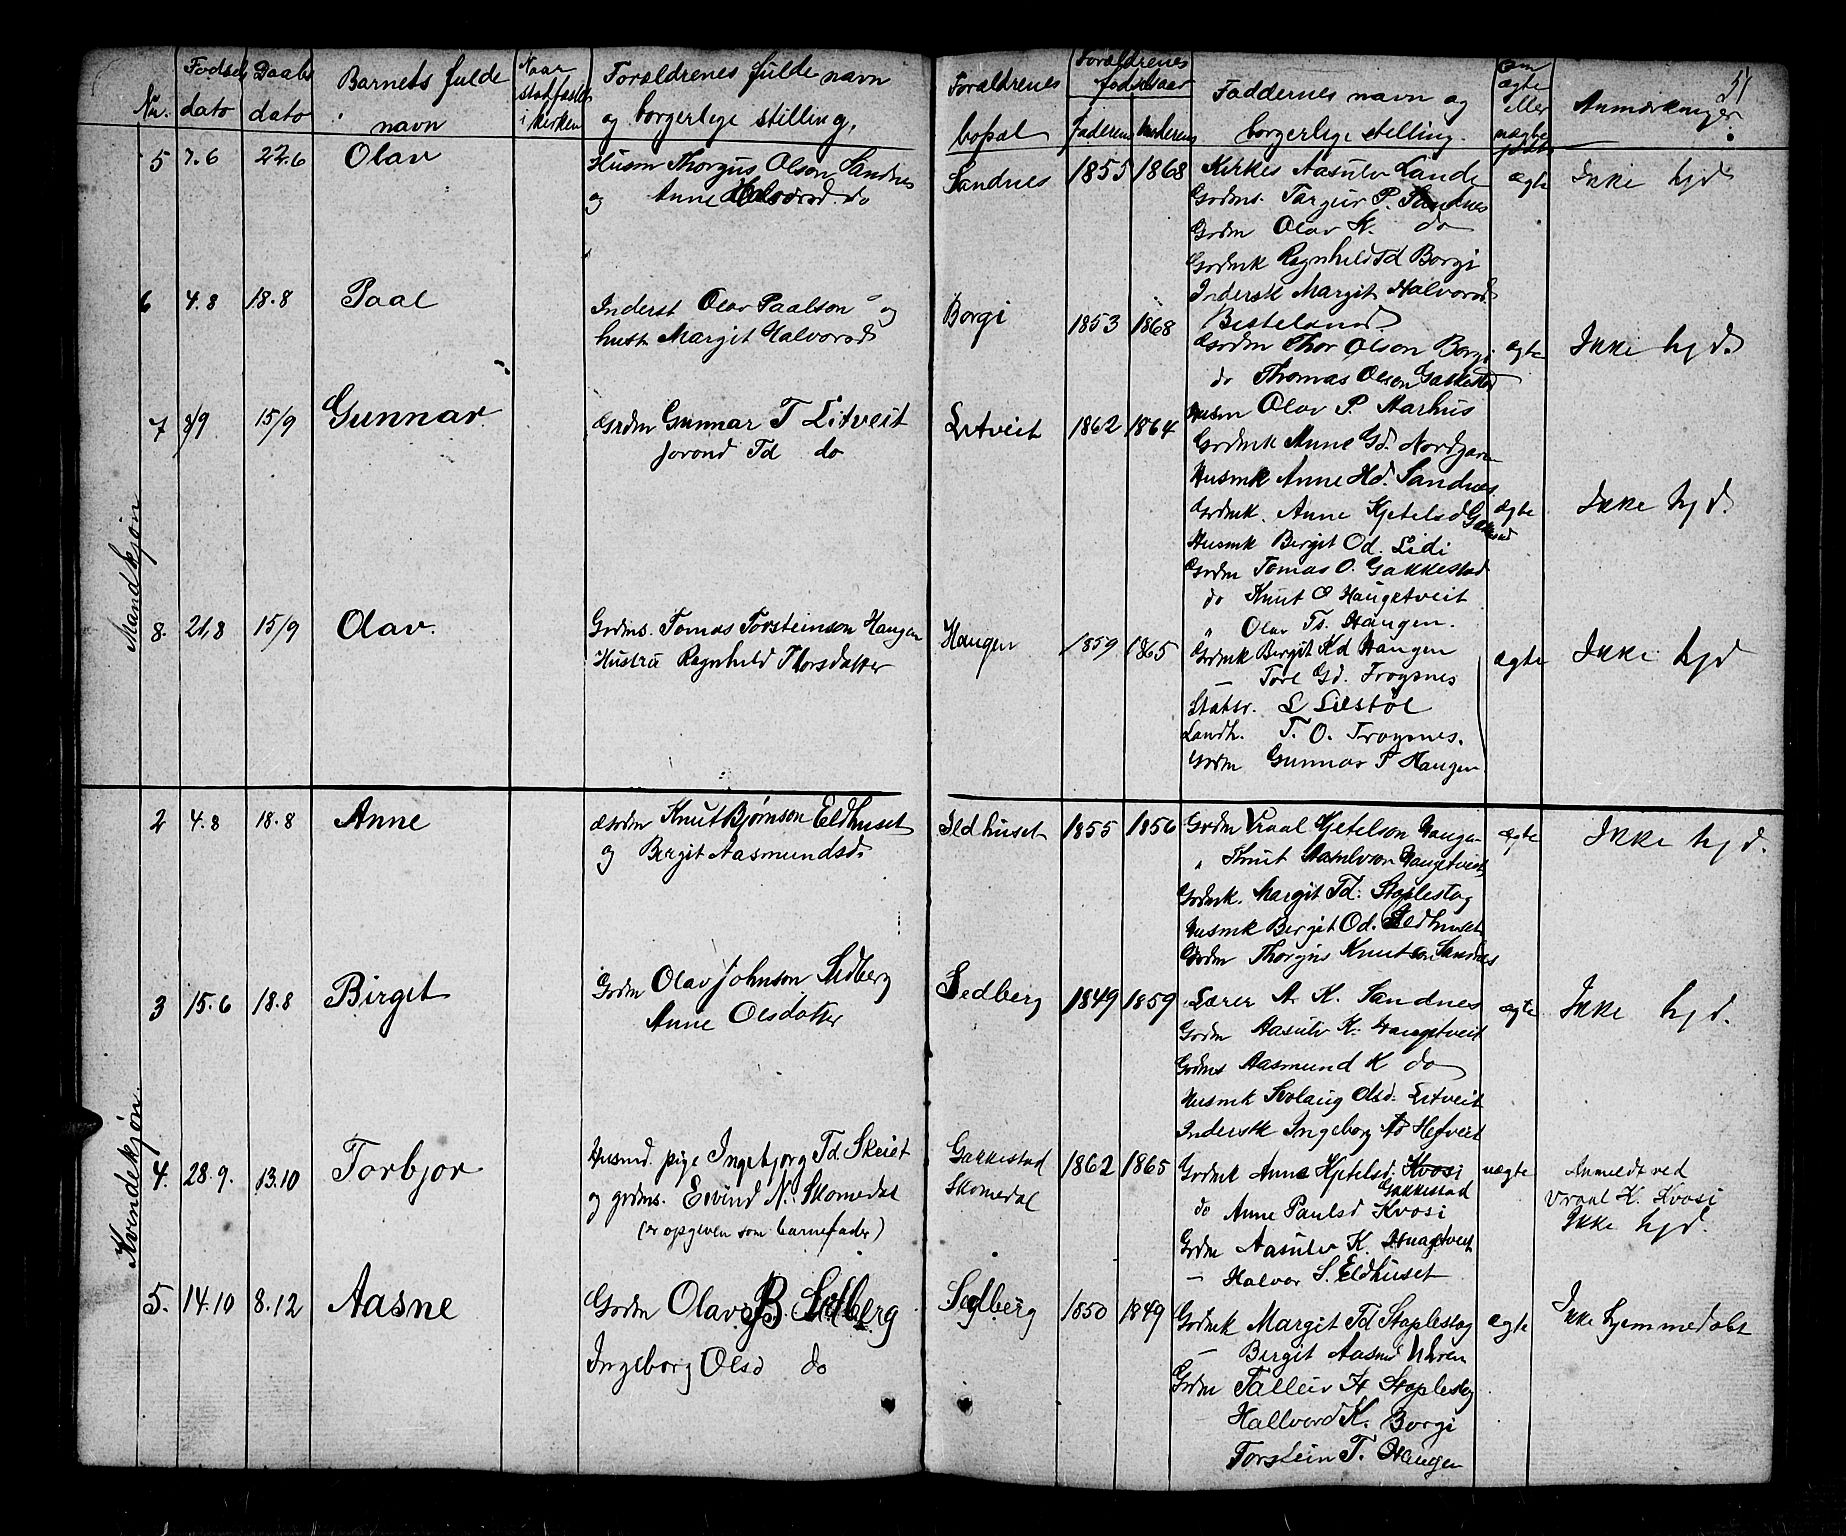 51
Nr.
Fødsels dato
Daabs dato
Barnets fulde navn
Naar stadfæstet i kirken
Forældrenes fulde navn og borgerlige stilling.
Forældrenes bopæl
Forældrenes fødselsaar
Faderens
Moderens
Faddernes navn og borgerlige stilling.
Om ægte eller uægte født
Anmærkninger
Mandkjøn
5 7.6 22.6 Olav
Husm Thorgus Olson Sandnes
og Anne Halvorsd. do
Sandnes 1855 1868
Kirkes Aasulv Lande
Grdms. Targjus P. Sandnes
Grdm Olav K. do
Grdmk Ragnhild Td Borgi
Indersk Margit Halvorsd.
Besteland
ægte Ikke hjd
6 4.8 18.8 Paal
Inderst Olav Paalson og
hust Margit Halvorsd
Borgi 1853 1868
Grdm Thor Olson Borgi
do Thomas Olson Gakkestad
Husm Olav P. Aarhus
Grdmk Anne Gd. Nordgaren
Husmk Anne Hd. Sandnes
ægte Ikke hjd.
7 8/9 15/9 Gunnar
Grdm Gunnar T Litveit
Jorond Td do
Litveit 1862 1864
Grdmk. Anne Kjetelsd Gakkestad
Husmk Bergit Od. Lidi
Grdm Tomas O. Gakkestad
do Knut O Haugetveit
" Olav Ts. Haugen.
ægte Ikke hjd
8. 21.8 15/9 Olav.
Grdms. Tomas Torsteinson Haugen
Hustru Ragnhild Thorsdatter
Haugen 1859 1865
Grdmk Bergit Kd Haugen
— Tore Gd. Frøysnes
Statsr. L Liestøl
Landh. T. O. Frøysnes.
Grdm Gunnar T Haugen
ægte Ikke hjd
Kvindekjøn
2 4.8 18.8 Anne
Grdm Knut Bjørnson Eldhuset
og Bergit Aasmundsd.
Ildhuset 1855 1856
Grdm Vraal Kjetelson Haugen
" Knut Aasulvson Haugetveit
Grdmk. Margit Td. Stoplestog
Husmk Bergit Od. Ildhuset
Grdm Thorgus Knutson Sandnes
ægte Ikke hjd.
3 15.6 18.8 Birget
Grdm Olav Johnson Sedberg
Anne Olsdatter
Sedberg 1849 1859
Lærer A. K. Sandnes
Grdm Aasulv K. Haugetveit
Grdms Aasmund K do
Husmk Svalaug Olsd. Litveit
Indersk Ingeborg Hestveit
ægte Ikke hjd.
4. 28.9. 13.10 Torbjør
Husmd. pige Ingebjorg Td. Skeiet
og grdms. Eivind N. Skomedal
(er opgiven som barnefader)
Gakkestad
Skomedal
1862 1865
Grdmk Anne Kjetelsd. Kvosi
Gakkestad
do Anne Paulsd Kvosi
Grdm Aasulv K. Haugetveit
— Halvor S. Eldhuset
uægte
Anmeldt ved
Vraal K. Kvosi
Ikke hjd.
5. 14.10 8.12 Aasne
Grdm Olav B. Sedberg
Ingeborg Olsd do
Sedberg 1850 1849
Grdmk Margit Td Stoplestog
— Bergit Aasmd Uhren
Grdm Talleiv H Stoplestog
— Hallvard K. Borgi
Torstein T. Haugen
ægte
Ikke hjemmedøbt